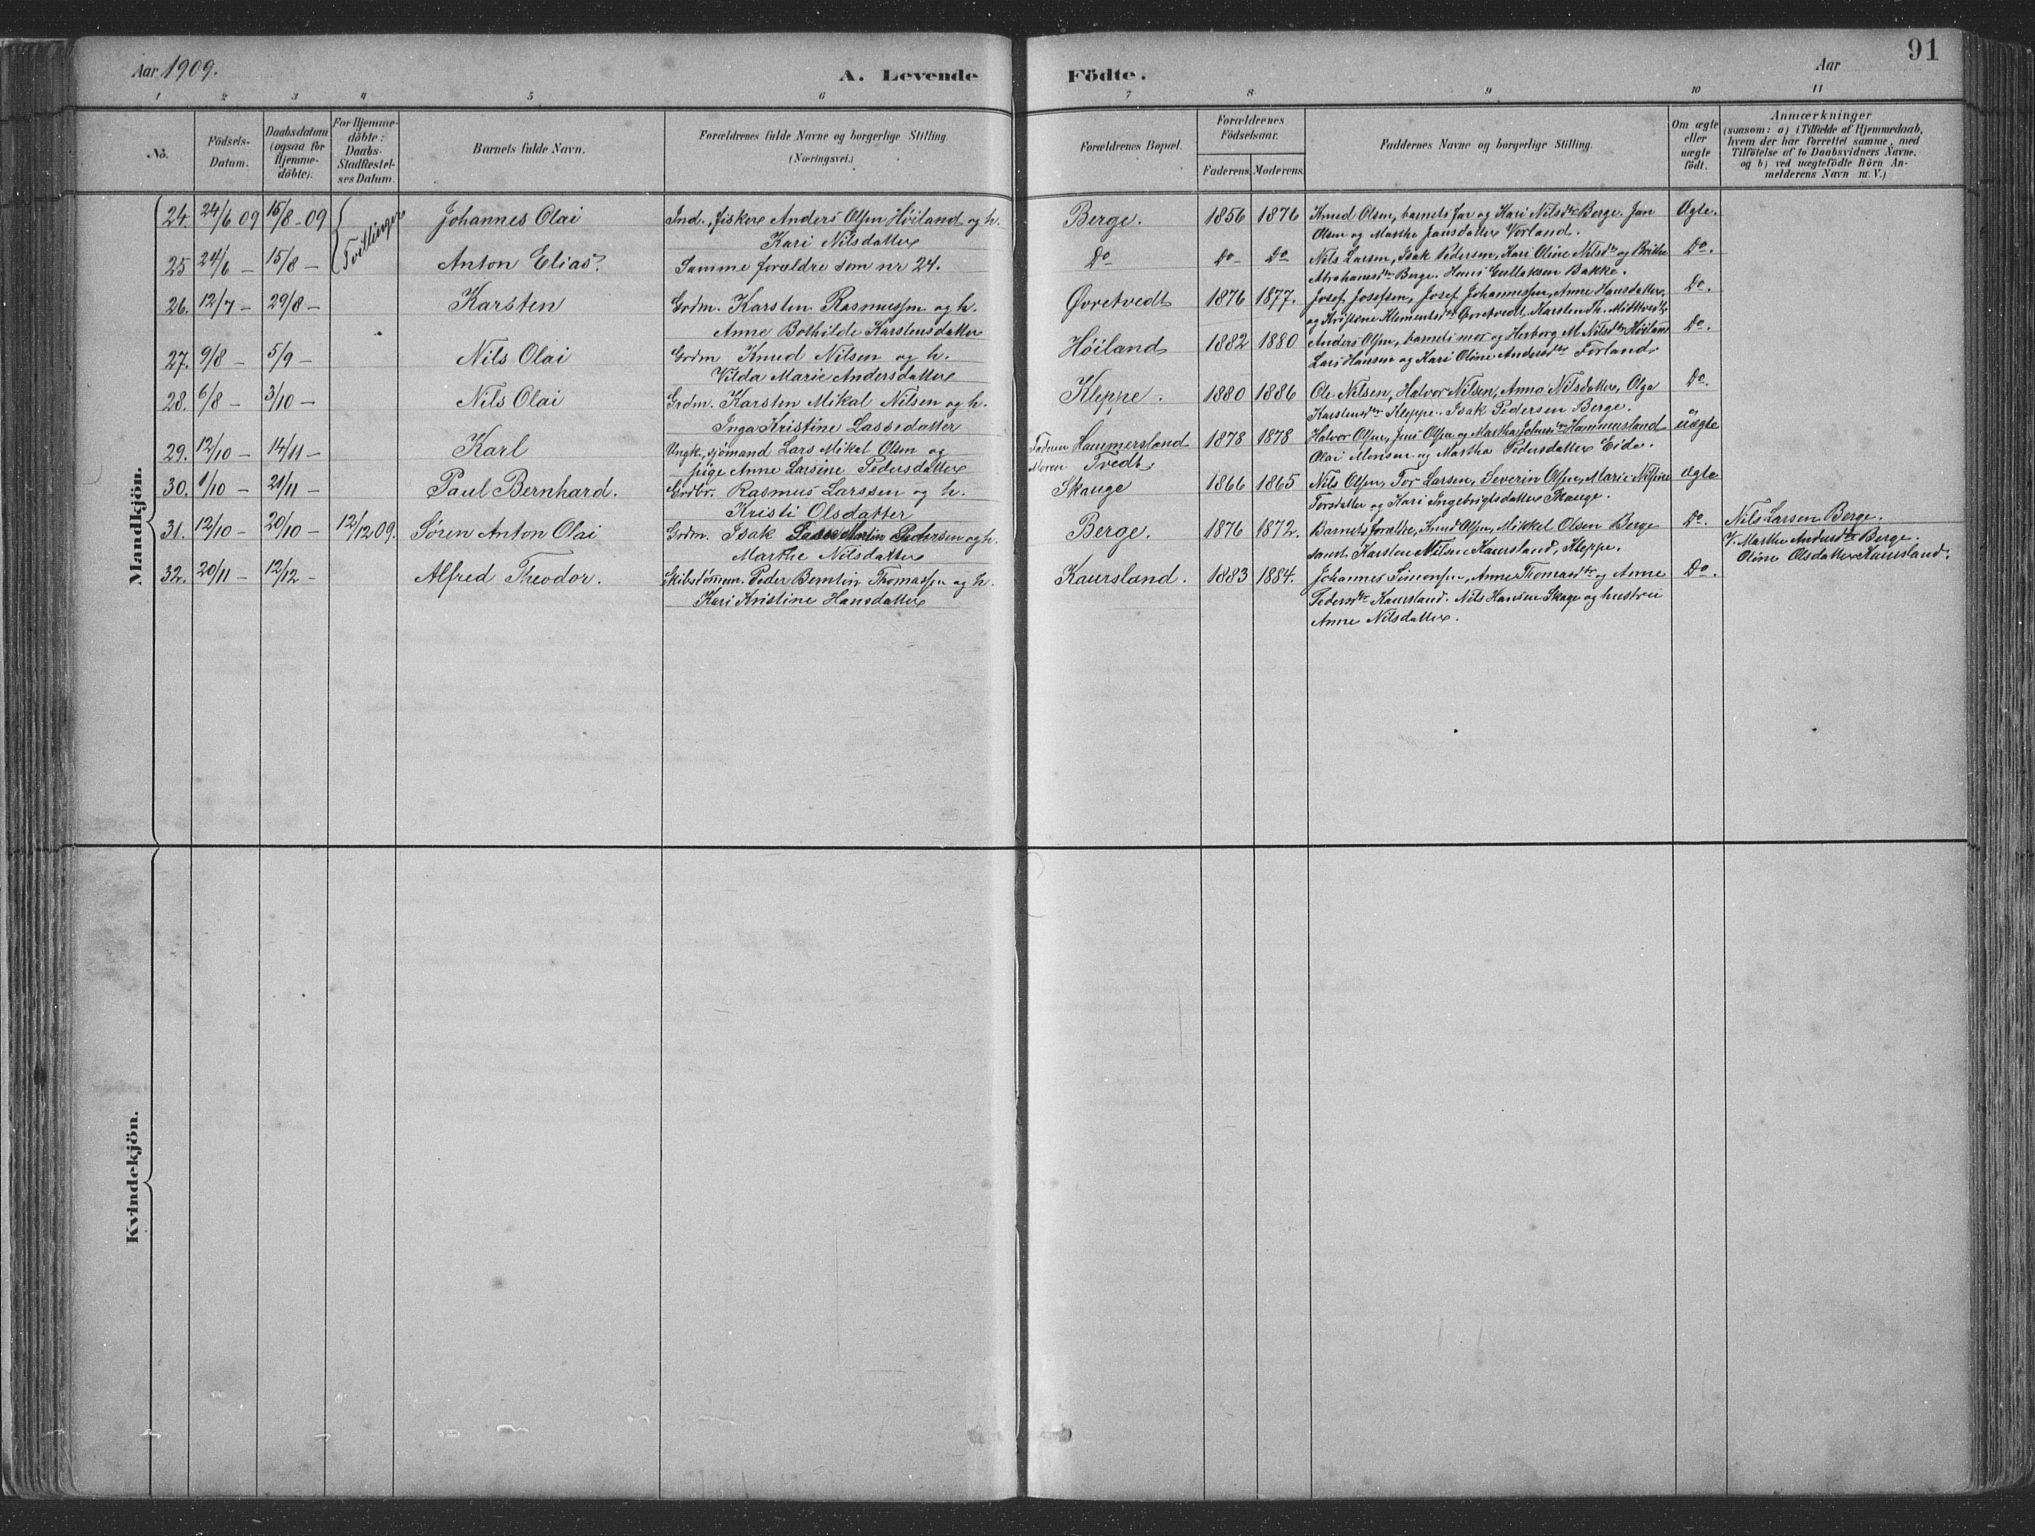 Aar 1909.
A. Levende Födte.
Aar
91
1 2 3 4 5 6 7 8 9 10 11
No.
Födsels-Datum.
Daabsdatum (ogsaa for Hjemme-döbte).
For Hjemme-döbte: Daabs-Stadfæstel-ses Datum.
Barnets fulde Navn.
Forældrenes fulde Navne og borgerlige Stilling (Næringsvei.)
Forældrenes Bopæl.
Forældrenes Födselsaar.
Faderens. Moderens.
Faddernes Navne og borgerlige Stilling.
Om ægte eller uægte födt.
Anmærkninger
(saasom: a) i Tilfælde af Hjemmedaab, hvem der har forrettet samme, med Tilföielse af to Daabsvidners Navne, og b) ved uægtefödte Börn An-melderens Navn m. V.)
Mandkjön.
24. 24/6 09 15/8-09 Tvillinger Johannes Olai Ind., fisker Anders Olsen Høiland og h. Berge. 1856 1876 Knud Olsen, barnets far og Kari Nilsdtr Berge. Jan Ægte.
Kari Nilsdatter Olsen og Marthe Jansdatter Vorland.
25 24/6 - 15/8 - Anton Elias. Samme forældre som nr 24. Do Do Do Nils Larsen, Isak Pedersen, Kari Oline Nilsdtr og Brithe Do.
Abrahamsdtr Berge. Hans Gullaksen Bakke.
26. 12/7 - 29/8 - Karsten Grdm. Karsten Rasmussen og h. Øvretvedt 1876 1877. Josef Josefsen, Josef Johannessen, Anne Hansdatter, Do.
Anne Bothilde Karstensdatter og Kristene Klementsdtr Øvretvedt, Karsten Th.
27. 9/8 - 5/9 - Nils Olai Grdm Knud Nilsen og h. Høiland 1882 1880 Anders Olsen, barnets mor og Herborg M. Nilsdtr Høiland Do.
Vilda Marie Andersdatter Lars Hansen og Kari Oline Andersdtr Forland.
28. 6/8 - 3/10 - Nils Olai Grdm. Karsten Mikal Nilsen og h. Kleppe. 1880 1886 Ole Nilsen, Halvor Nilsen, Anna Nilsdatter, Olga Do.
Inga Kristine Lassesdatter Karstensdtr Kleppe. Isak Pedersen Berge.
29. 12/10 - 14/11 - Karl Ungk., sjömand Lars Mikal Olsen og Faderen Hammersland 1878 1878 Halvor Olsen, Jens Olsen og Martha Johansdtr Hammersland uægte
pige Anne Larsine Pedersdatter Moren Tvedt Olai Monsen og Martha Pedersdatter Eide.
30. 1/10 - 21/11 - Paul Bernhard. Grdbr. Rasmus Larssen og h. Skauge 1866 1865 Nils Olsen, Tor Larsen, Severin Olsen, Marie Nilsine ægte
Kristi Olsdatter Torsdatter og Kari Ingebrigtsdatter Skauge.
31. 12/10 - 20/10 - 12/12 09. Søren Anton Olai Grdm. Isak Martin Pedersen og h. Berge. 1876 1872. Barnets forældre, Knud Olsen, Mikkel Olsen Berge Do. Nils Larsen Berge.
Marthe Nilsdatter samt Karsten Nilsen Kaursland, Kleppe. V. Marthe Andersdtr Berge.
Oline Olsdatter Kaursland.
32. 20/11 - 12/12 - Alfred Theodor. Skibstömm. Peder Berntin Thomassen og h. Kaursland. 1883 1884. Johannes Simonsen, Anne Thomasdtr og Anne Do.
Kari Kristine Hansdatter Pedersdtr Kaursland. Nils Hansen Skage og hustru
Anne Nilsdatter.
Kvindekjön.